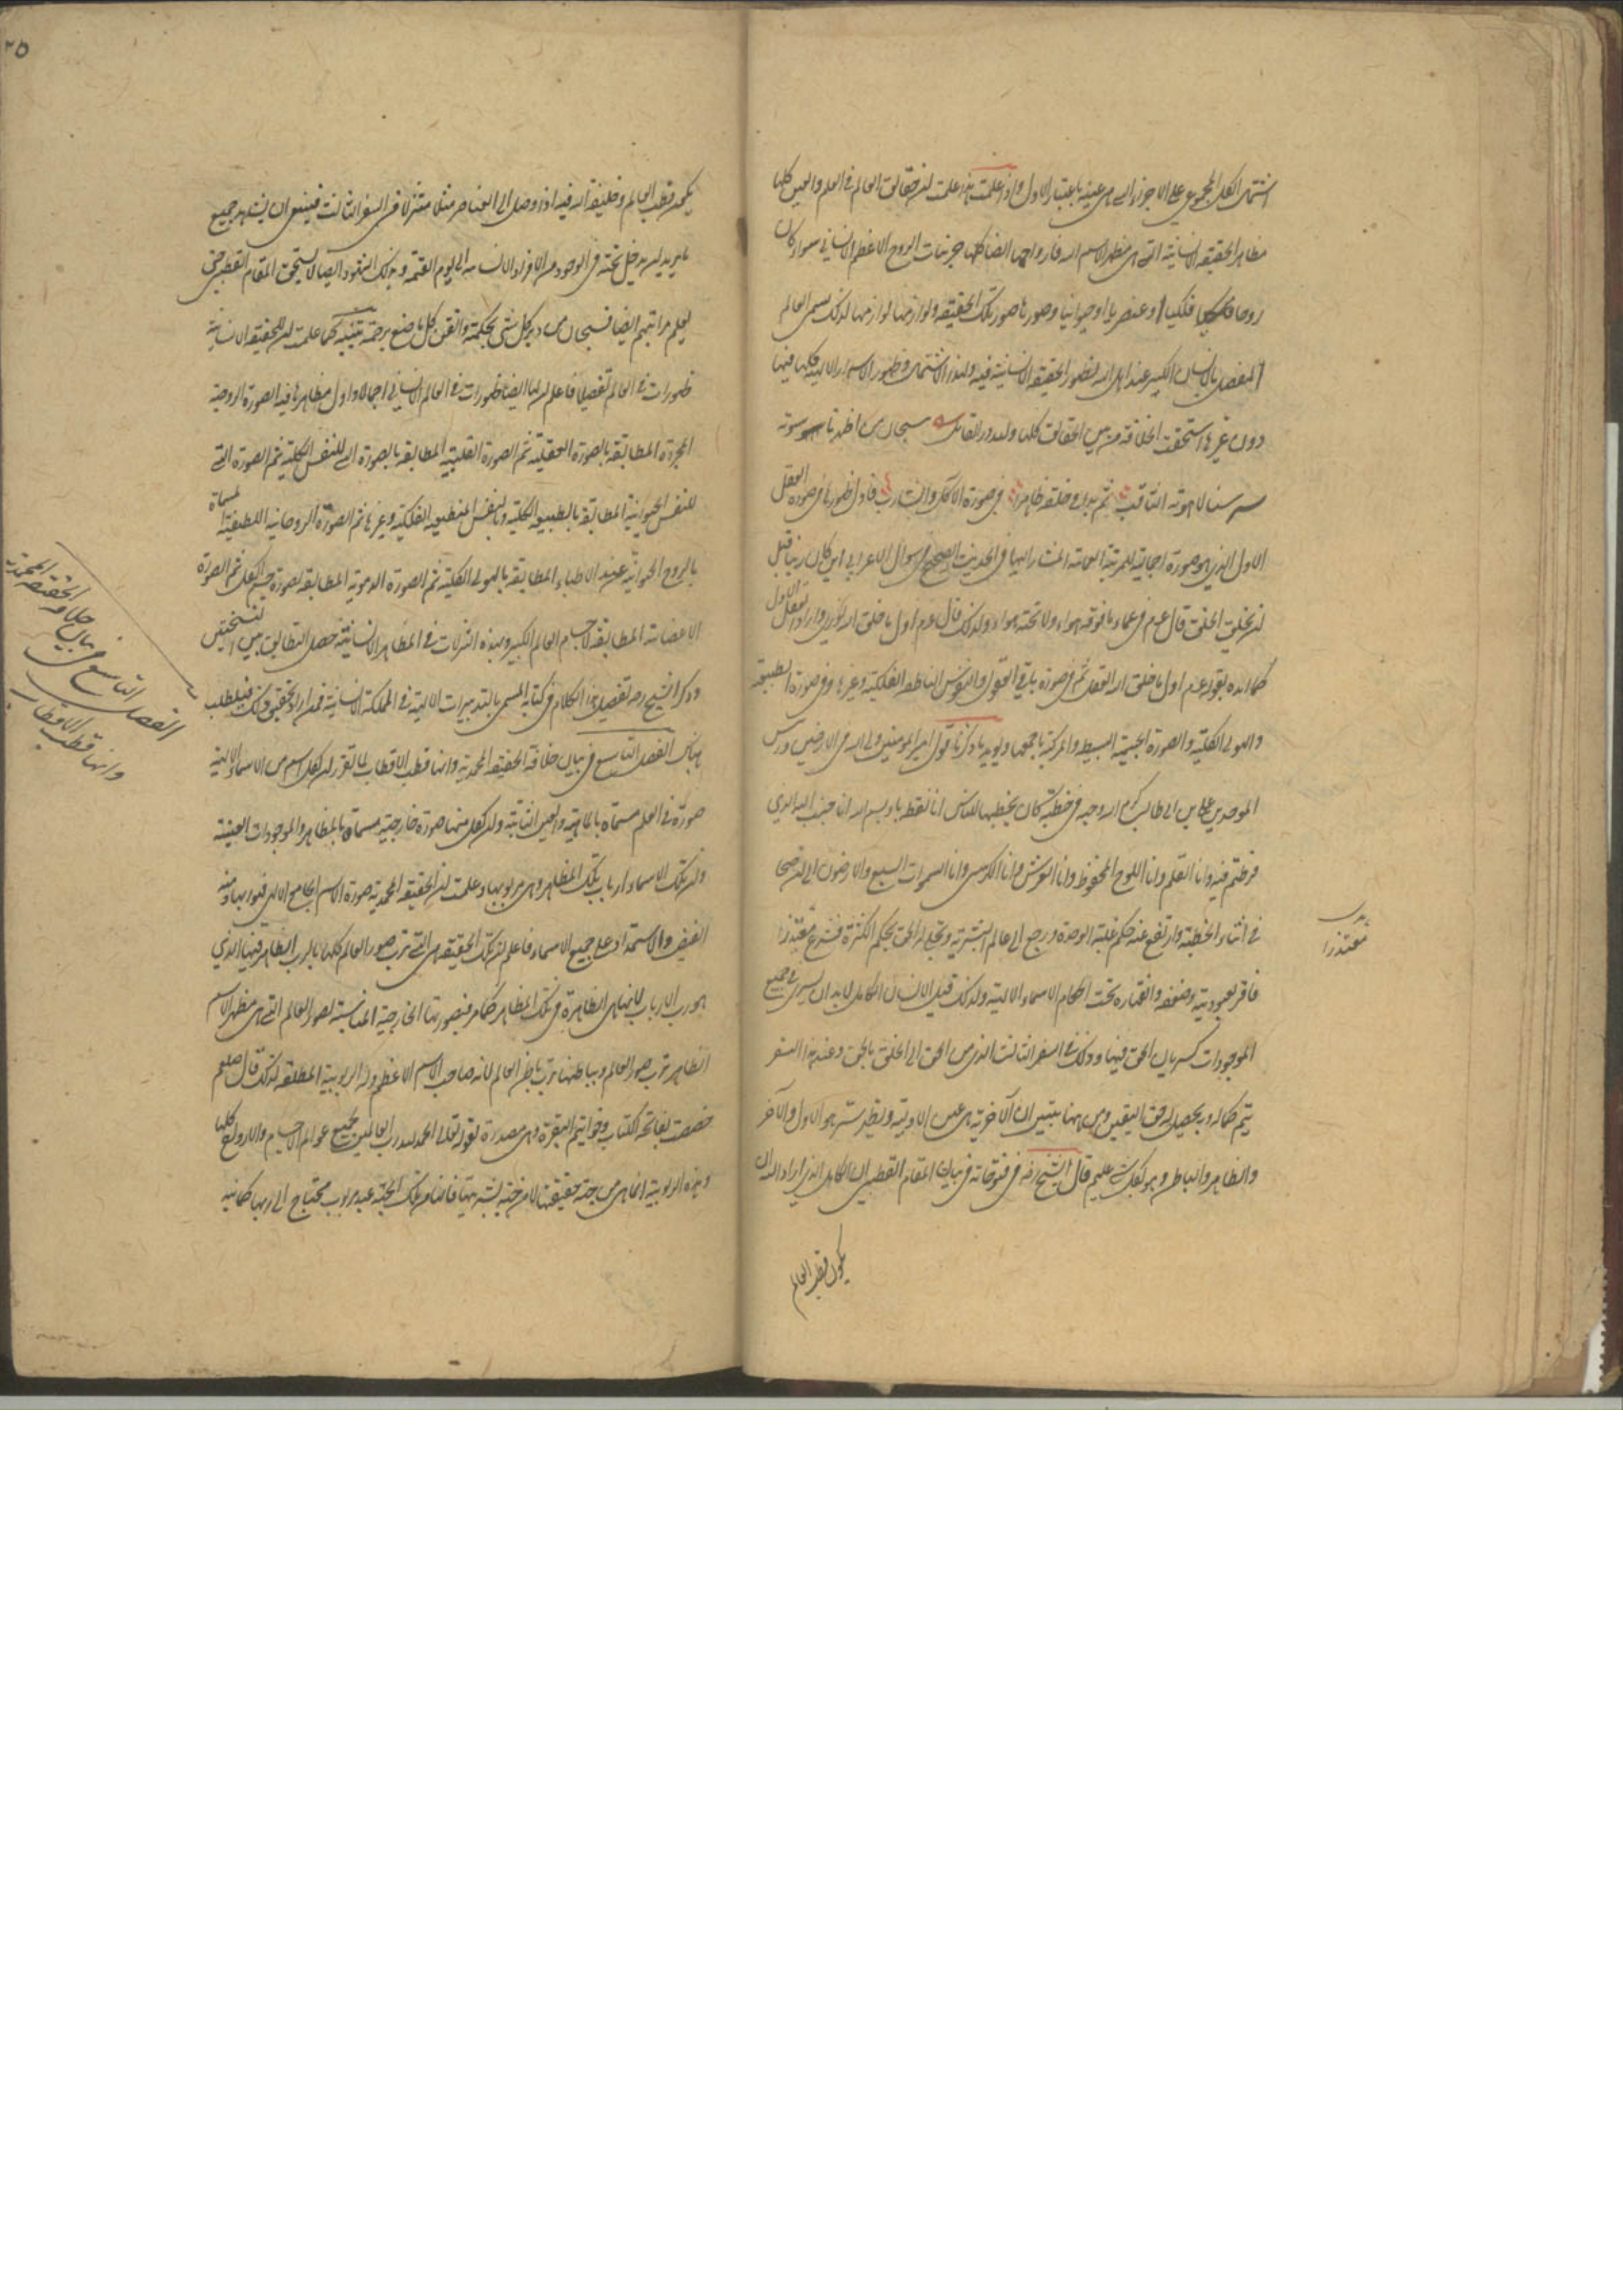 اشتمال الكل المجموعى على الاجزاء التى هى عينه باعتبار الاول واذا علمت هذا علمت ان حقائق العالم فى العلم والعين كلها
مظاهر للحقيقة الانسانية التى هى مظهر الاسم الله فارواحها ايضا كلها جزئيات الروح الاعظم الانسانى سواء كان
روحا فلكيا او عنصريا او حيوانيا وصورها صور تلك الحقيقة ولوازمها لوازمها لذلك يسمى العالم
المفصل بالانسان الكبير عند اهل الله لظهور الحقيقة الانسانية فيه ولهذا الاشتمال وظهور الاسرار الالهية كلها فيها
دون غيرها استحقت الخلافة من بين الحقائق كلها ولله در القائل سبحان من اظهر ناسوته
سر سنا لاهوته الثاقب ثم بدا فى خلقه ظاهرا فى صورة الآكل والشارب فاول ظهورها فى صورة العقل
الاول الذى هو صورة اجمالية للمرتبة العمائية المشار اليها فى الحديث الصحيح عن سوال الاعرابى اين كان ربنا قبل
ان يخلق الخلق قال عم فى عماء ما فوقه هواء ولا تحته هواء ولذلك قال عم اول ما خلق الله نورى واراد العقل الاول
كما ايده بقوله عم اول ما خلق الله العقل ثم فى صورة باقى العقول والنفوس الناطقة الفلكية وغيرها وفى صورة الطبيعة
والهيولى الكلية والصورة الجسمية البسيطة والمركبة باجمعها ويؤيد ما ذكرنا قول امير المومنين ولى الله فى الارضين
الموحدين على بن ابى طالب كرم الله وجهه فى خطبة كان يخطبها للناس انا نقطة باء بسم الله انا جنب الله الذى
فرطتم فيه وانا القلم وانا اللوح المحفوظ وانا العرش وانا الكرسى وانا السموات السبع والارضون الى ان صحا
فى اثناء الخطبة وارتفع عنه حكم غلبة الوحدة ورجع الى عالم البشرية وتجلى له الحق بحكم الكثرة فشرع معتذرا
فاقر بعبوديته وضعفه وانقهاره تحت احكام الاسماء الالهية ولذلك قيل الانسان الكامل لابد ان يسرى فى جميع
الموجودات كسريان الحق فيها وذلك فى السفر الثالث الذى من الحق الى الخلق بالحق وعند هذا السفر
يتم كماله وبه يحصل له حق اليقين ومن ههنا يتبين ان الآخرية هى عين الاولية ويظهر سر هو الاول والآخر
والظاهر والباطن وهو بكل شئ عليم قال الشيخ رضه فى فتوحاته فى بيان المقام القطبى ان الكامل الذى اراد الله ان
يكون قطب العالم
معتذرا
٢٥
يكون قطب العالم وخليفة الله فيه اذا وصل الى العناصر مثلا متنزلا فى السفر الثالث فينبغى ان يشاهد جميع
ما يريد ان يدخل تحته فى الوجود من الافراد الانسانية الى يوم القيمة وبذلك الشهود ايضا لا يستحق المقام القطبى حتى
يعلم مراتبهم ايضا فسبحان من دبر كل شئ بحكمته واتقن كل ما صنع برحمته تنبيه كما علمت ان للحقيقة الانسانية
ظهورات فى العالم تفصيلا فاعلم ان لها ايضا ظهورات فى العالم الانسانى اجمالا واول مظاهرها فيه الصورة الروحية
المجردة المطابقة بالصورة العقلية ثم الصورة القلبية المطابقة بالصورة التى للنفس الكلية ثم الصورة التى
للنفس الحيوانية المطابقة بالطبيعة الكلية وبالنفس المنطبعة الفلكية وغيرها ثم الصورة الدخانية اللطيفة المسماة
بالروح الحيوانية عند الاطباء المطابقة بالهيولى الكلية ثم الصورة الدموية المطابقة لصورة جسم الكل ثم الصورة
الاعضائية المطابقة لاجسام العالم الكبير وبهذه التنزلات فى المظاهر الانسانية حصل التطابق بين النسختين
وذكر الشيخ رضه تفصيل هذا الكلام فى كتابه المسمى بالتدبيرات الالهية فى المملكة الانسانية فمن اراد تحقيق ذلك فليطلب
هناك الفصل التاسع فى بيان خلافة الحقيقة المحمدية وانها قطب الاقطاب لما تقرر ان لكل اسم من الاسماء الالهية
صورة فى العلم مسماة بالماهية والعين الثابتة وان لكل منها صورة خارجية مسماة بالمظاهر والموجودات العينية
وان تلك الاسماء ارباب تلك المظاهر وهى مربوبها وعلمت ان الحقيقة المحمدية صورة الاسم الجامع الالهى وهو ربها ومنه
الفيض والاستمداد على جميع الاسماء فاعلم ان تلك الحقيقة هى التى ترب صور العالم كلها بالرب الظاهر فيها الذى
هو رب الارباب لانها هى الظاهرة فى تلك المظاهر كما مر فبصورتها الخارجية المناسبة لصور العالم التى هى مظهر الاسم
الظاهر ترب صور العالم وبباطنها ترب باطن العالم لانه صاحب الاسم الاعظم وله الربوبية المطلقة لذلك قال صلعم
خصصت بفاتحة الكتاب وخواتيم البقرة وهى مصدرة بقوله تعالى الحمد لله رب العالمين فجميع عوالم الاجسام والارواح كلها
وهذه الربوبية انما هى من جهة حقيقتها لا من جهة بشريتها فانها من تلك الجهة عبد مربوب محتاج الى ربها كما نبه
الفصل التاسع فى بيان خلافة الحقيقة المحمدية
وانها قطب الاقطاب